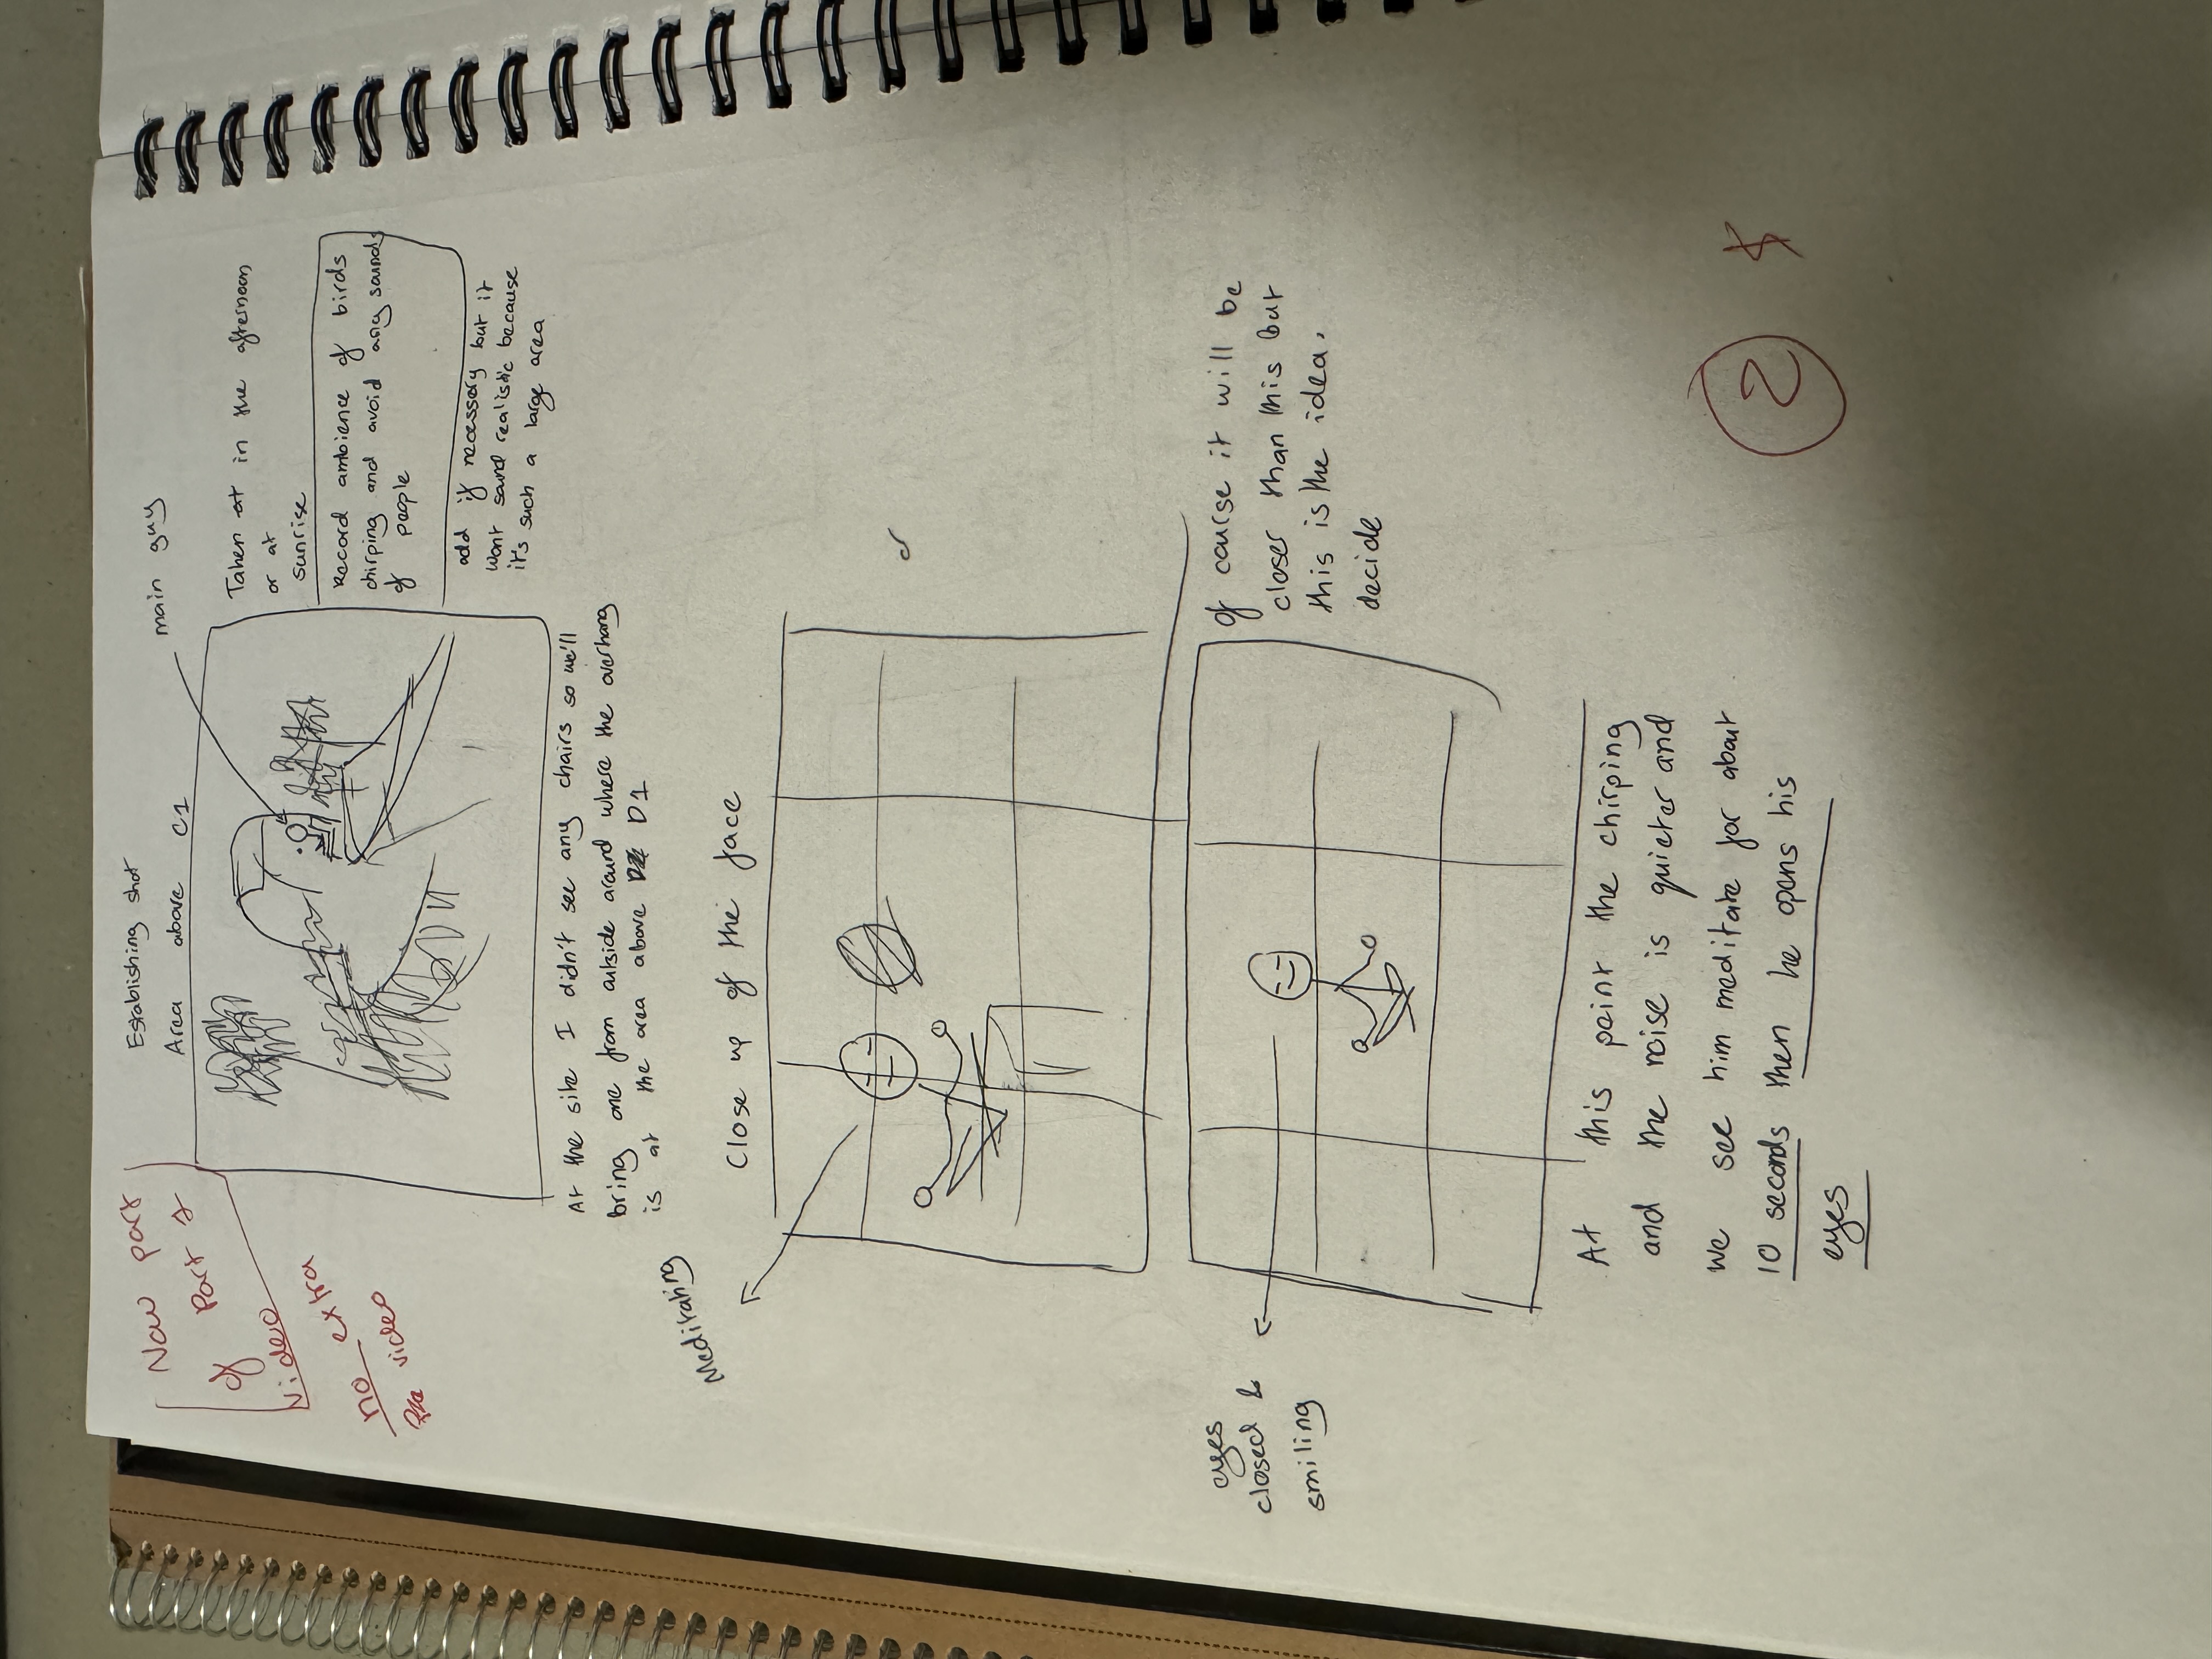 Now part
of Part 1
video
no extra
video
Establishing shot
Area above C1
main guy
Taken at in the afternoon
or at
sunrise
Record ambience of birds
chirping and avoid any sounds
of people
add if necessary but it
wont sound realistic because
it's such a large area
At the site I didn't see any chairs so we'll
bring one from outside around where the overhang
is at the area above D1
Meditating
Close up of the face
eyes
closed &
smiling
of course it will be
closer than this but
this is the idea.
decide
At this point the chirping
and the noise is quieter and
we see him meditate for about
10 seconds then he opens his
eyes
2